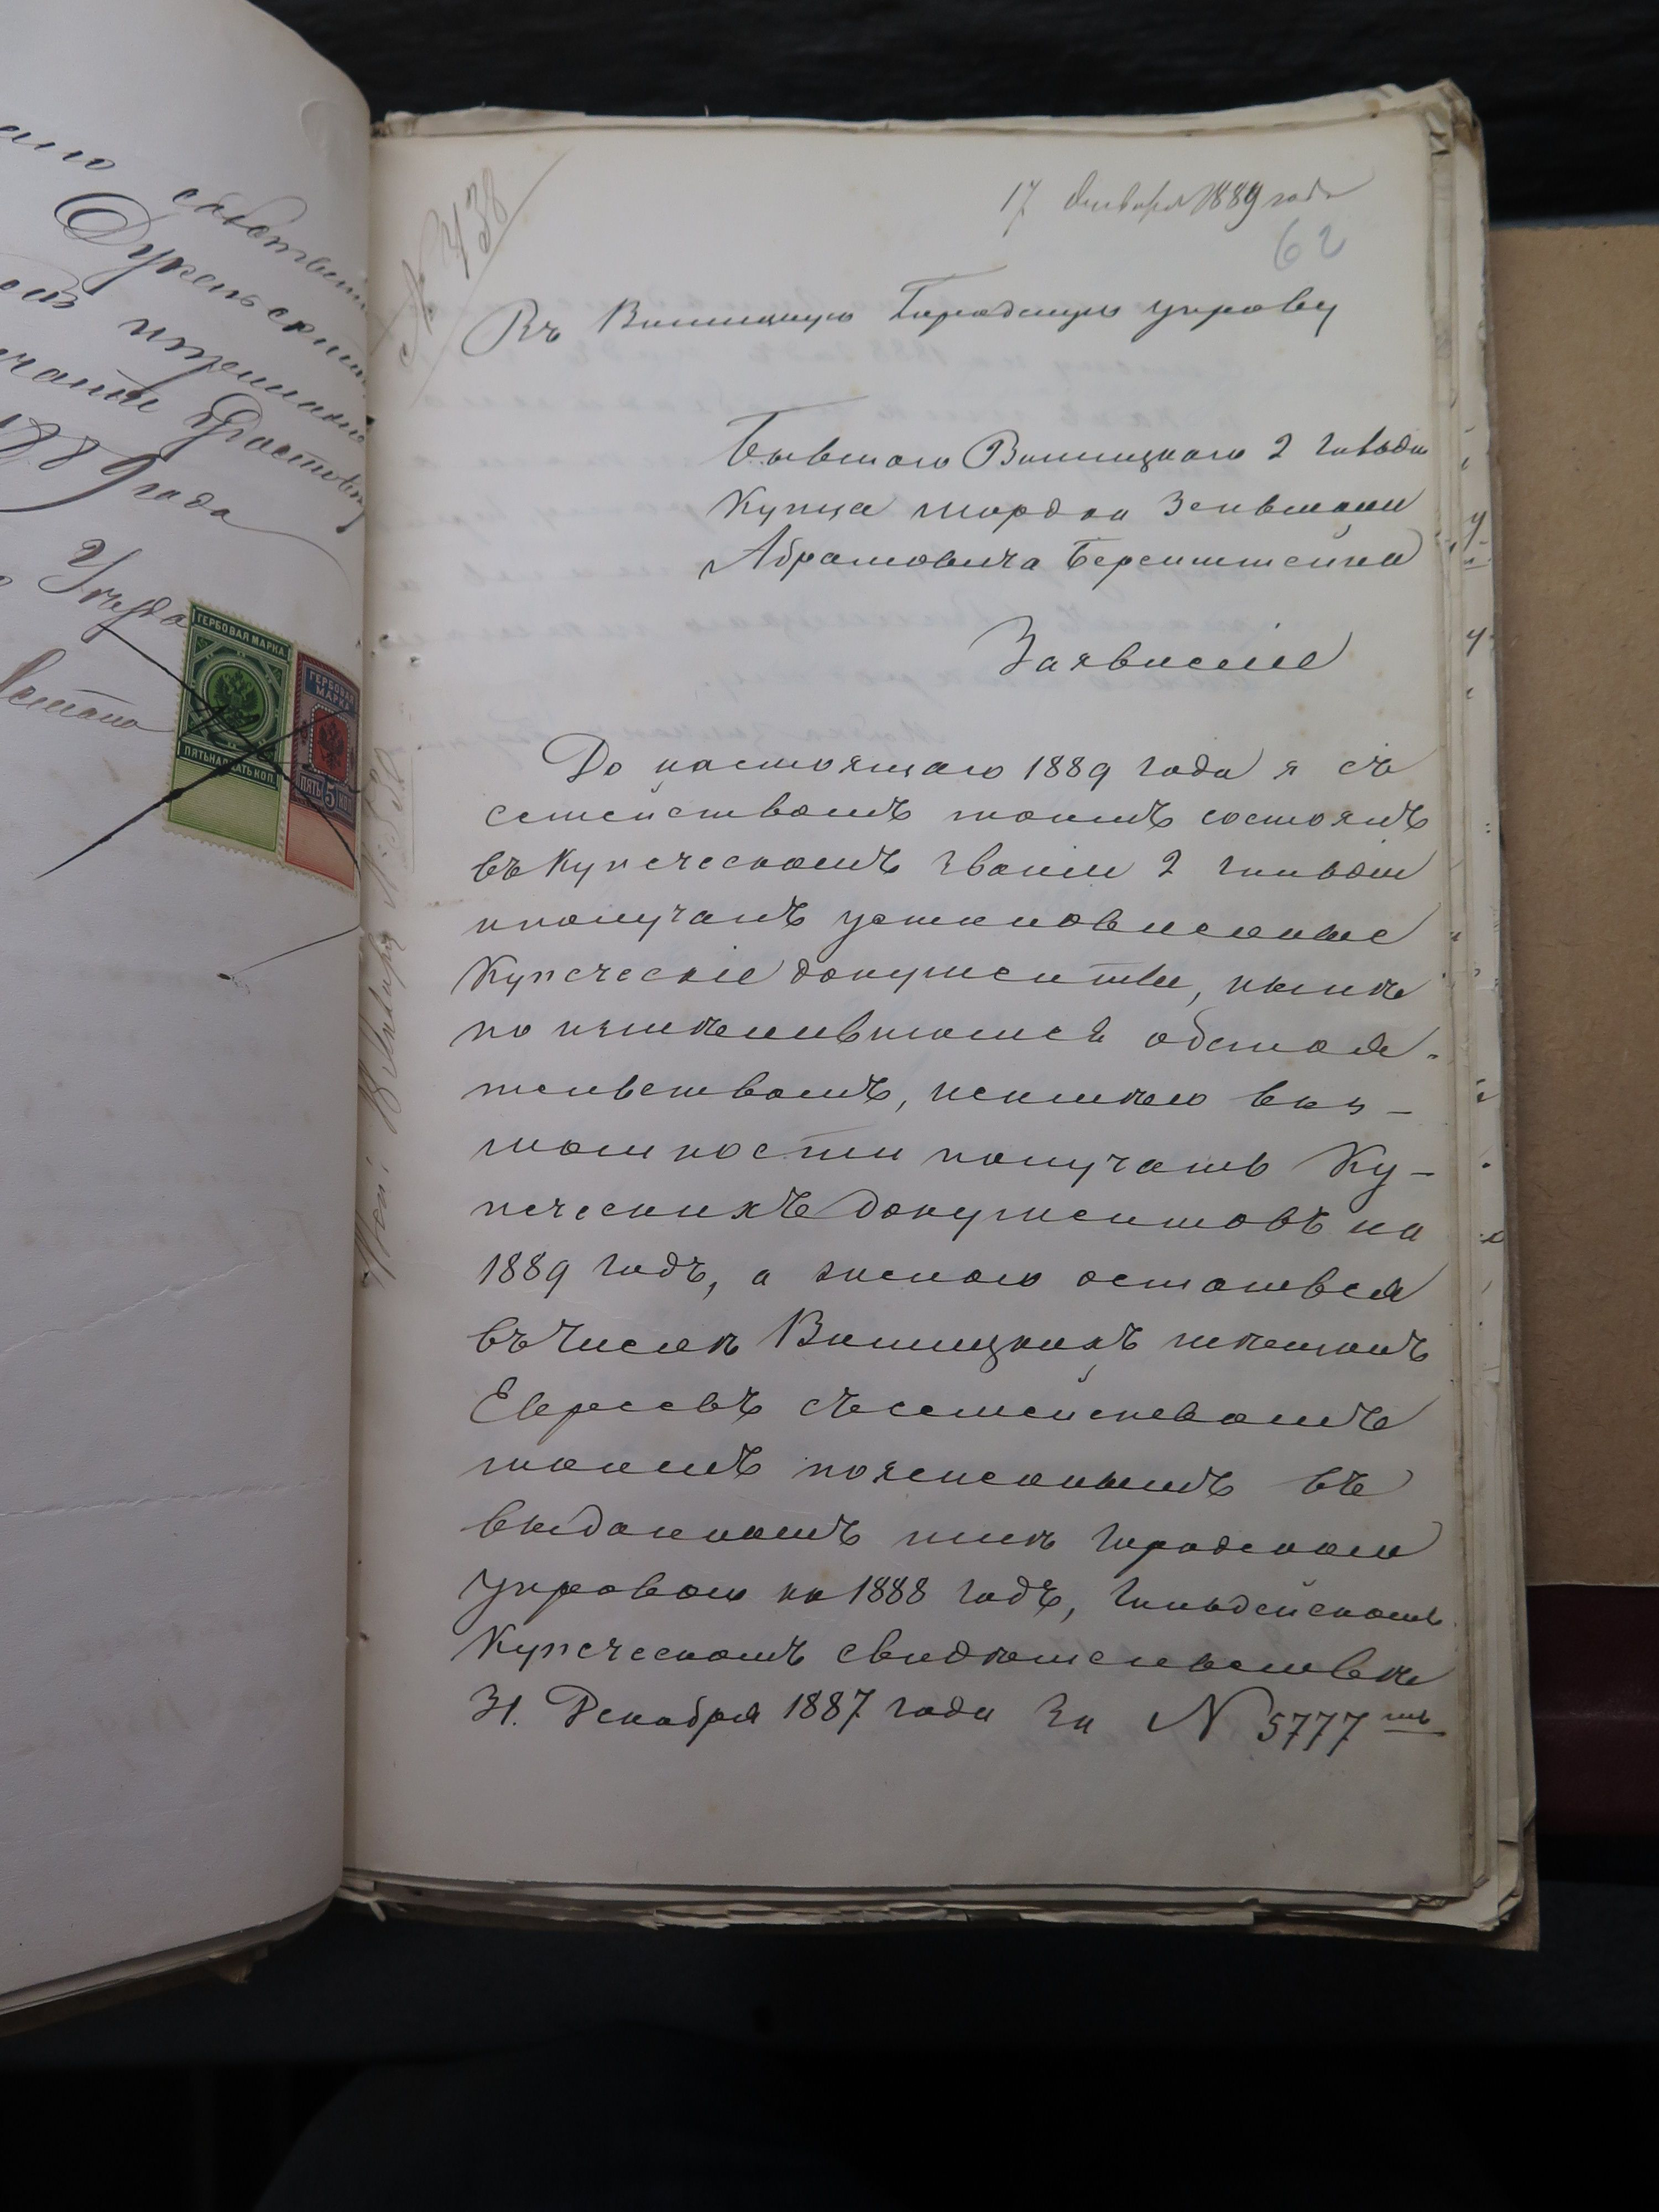 собственно
Дукельскій
1889 года
Уѣзда
ГЕРБОВАЯ МАРКА.
ПЯТЬНАДЦАТЬ КОП.
ГЕРБОВАЯ
МАРКА
ПЯТЬ 5 КОП.
№ 438
17 Января 1889 года
62
Въ Винницкую Городскую управу
Бывшаго Винницкаго 2 гильдіи
Купца Мордка Зельмана
Абрамовича Беренштейна
Заявленіе
До настоящаго 1889 года я съ
семействомъ моимъ состоялъ
въ Купеческомъ званіи 2 гильдіи
и получалъ установленные
Купеческіе документы, нынѣ
по измѣнившимся обстоя-
тельствамъ, неимѣю воз-
можности получать Ку-
печескихъ документовъ на
1889 годъ, а желаю остаться
въ числѣ Винницкихъ мѣщанъ
Евреевъ съ семействомъ
моимъ поясненнымъ въ
выданномъ мнѣ Городскою
Управою на 1888 годъ, Гильдейскомъ
Купеческомъ свидѣтельствѣ
31. Декабря 1887 года за № 5777 мъ